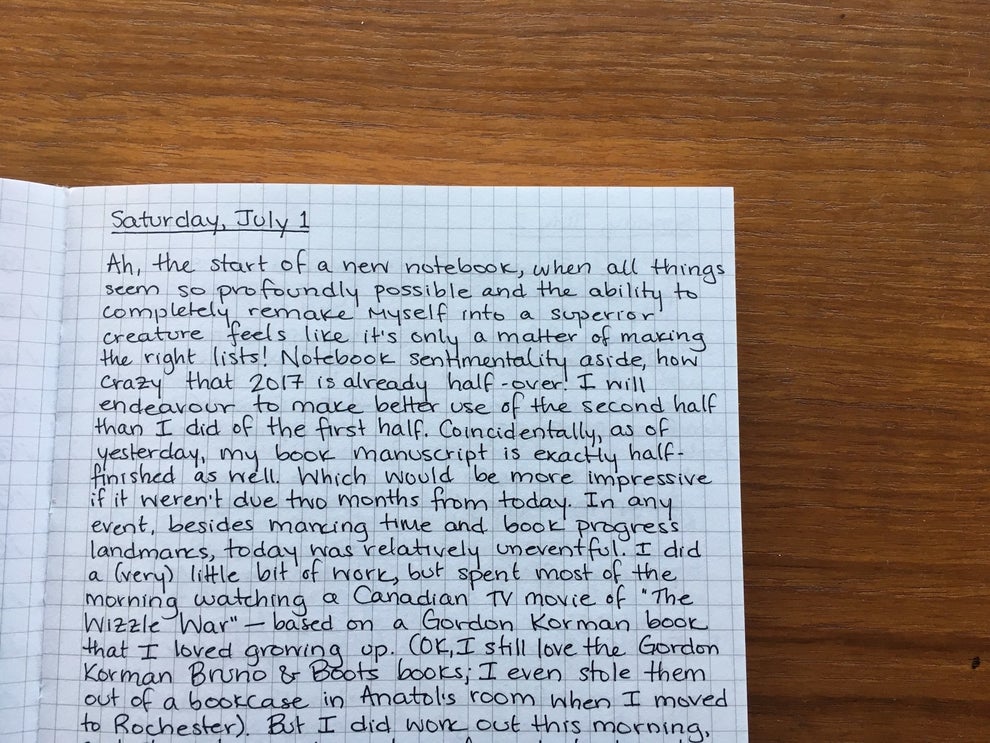 Saturday, July 1
Ah, the start of a new notebook, when all things
seem so profoundly possible and the ability to
completely remake myself into a superior
creature feels like it's only a matter of making
the right lists! Notebook sentimentality aside, how
crazy that 2017 is already half-over! I will
endeavour to make better use of the second half
than I did of the first half. Coincidentally, as of
yesterday, my book manuscript is exactly half-
finished as well. Which would be more impressive
if it weren't due two months from today. In any
event, besides marking time and book progress
landmarks, today was relatively uneventful. I did
a (very) little bit of work, but spent most of the
morning watching a Canadian TV movie of "The
Wizzle War" — based on a Gordon Korman book
that I loved growing up. (OK, I still love the Gordon
Korman Bruno & Boots books; I even stole them
out of a bookcase in Anatol's room when I moved
to Rochester). But I did work out this morning,